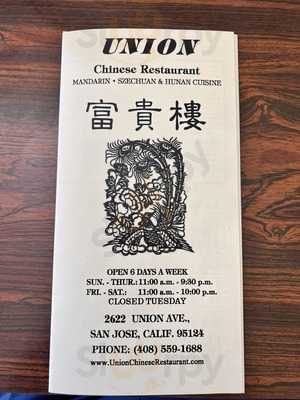 UNION
Chinese Restaurant
MANDARIN • SZECHUAN & HUNAN CUISINE
富貴樓
OPEN 6 DAYS A WEEK
SUN. - THUR.: 11:00 a.m. - 9:30 p.m.
FRI. - SAT.: 11:00 a.m. - 10:00 p.m.
CLOSED TUESDAY
2622 UNION AVE.,
SAN JOSE, CALIF. 95124
PHONE: (408) 559-1688
www.UnionChineseRestaurant.com